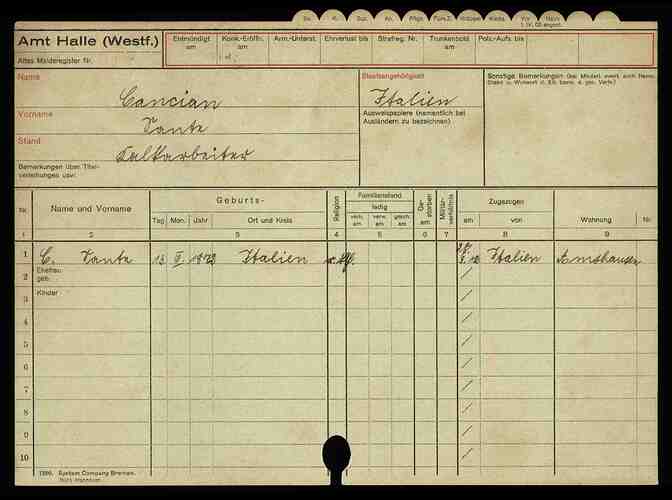 Amt Halle (Westf.)
Altes Melderegister Nr.
Entmündigt am
Konk.-Eröffn. am
Arm.-Unterst.
Ehrverlust bis
Strafreg. Nr.
Trunkenbold am
Poliz.-Aufs. bis
Name
Cancian
Vorname
Sante
Stand
Kalkarbeiter
Bemerkungen über Titelverleihungen usw.
Staatsangehörigkeit
Italien
Ausweispapiere (namentlich bei
Ausländern zu bezeichnen)
Sonstige Bemerkungen
Nr.
Name und Vorname
Geburts-
Tag Mon. Jahr Ort und Kreis
Religion
Familienstand
ledig
verh. am verw. am gesch. am
Gestorben am
Militärverhältnis
Zugezogen
am von
Wohnung Nr.
1 2 3 4 5 6 7 8 9
1 C. Sante 13 Italien Italien Amshausen
2 Ehefrau
geb.
3 Kinder
4
5
6
7
8
9
10
1390. System Company Bremen.